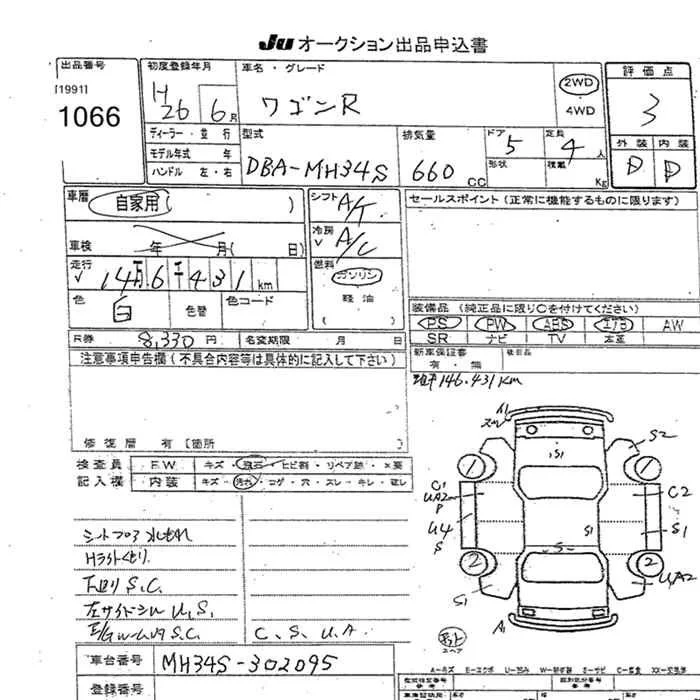 JU オークション出品申込書
出品番号
[1991]
1066
初度登録年月
H
26 6月
車名・グレード
ワゴンR
2WD
4WD
評価点
3
外装 内装
D D
ディーラー・並行
モデル年式 年
ハンドル 左・右
型式
DBA-MH34S
排気量
660 CC
ドア
5
形状
定員
4人
積載
Kg
車歴
自家用( )
車検 年 月( 日)
走行
14万6千431km
色
白
色替
色コード
シフト
A/T
冷房
A/C
燃料
ガソリン
軽油
セールスポイント(正常に機能するものに限ります)
装備品(純正品に限り〇を付けてください)
PS PW ABS エアB AW
SR ナビ TV 本革
新車保証書
有・無
後日品
R券 8,330円 名変期限 月 日
注意事項申告欄(不具合内容等は具体的に記入して下さい)
146.431km
修復歴 有[箇所 ]
検査員
記入欄
F.W キズ・飛石・ヒビ割・リペア跡・×要
内装 キズ・汚れ・コゲ・穴・スレ・キレ・破レ
下回りS.C.
左サイドシル U.S.
C.S.U.A.
A1
S1
S2
C1
UA2
P
U4
S
C2
S1
S1
S
1
2
2
S1
UA2
A1
スペア
車台番号 MH34S-302095
登録番号